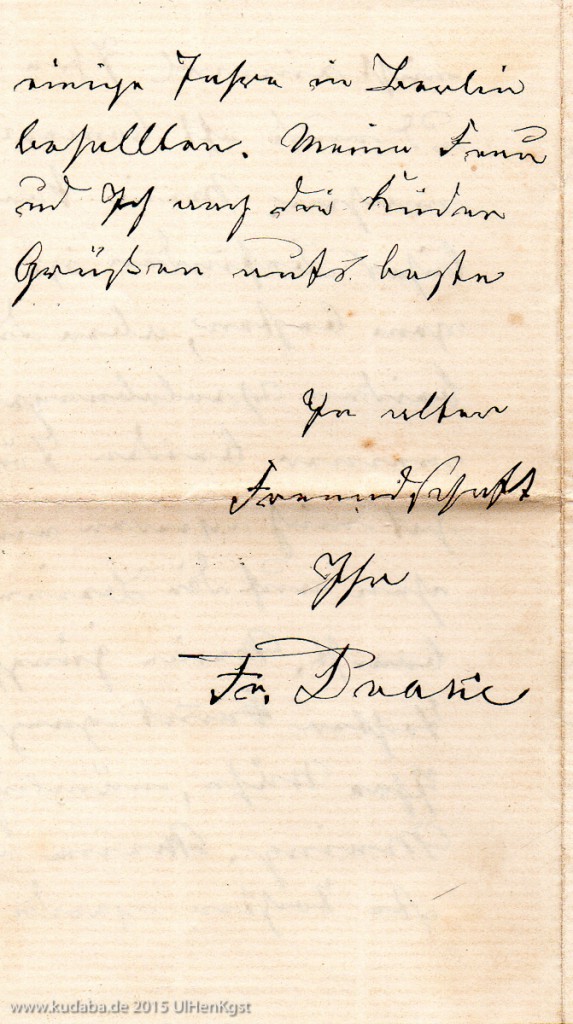 einige Jahre in Berlin
behallten. Meine Frau
ud Ich auch die Kinder
Grüßen aufs beste
In alter
Freundschaft
Ihr
Fr. Drake
www.kudaba.de 2015 UlHenKgst